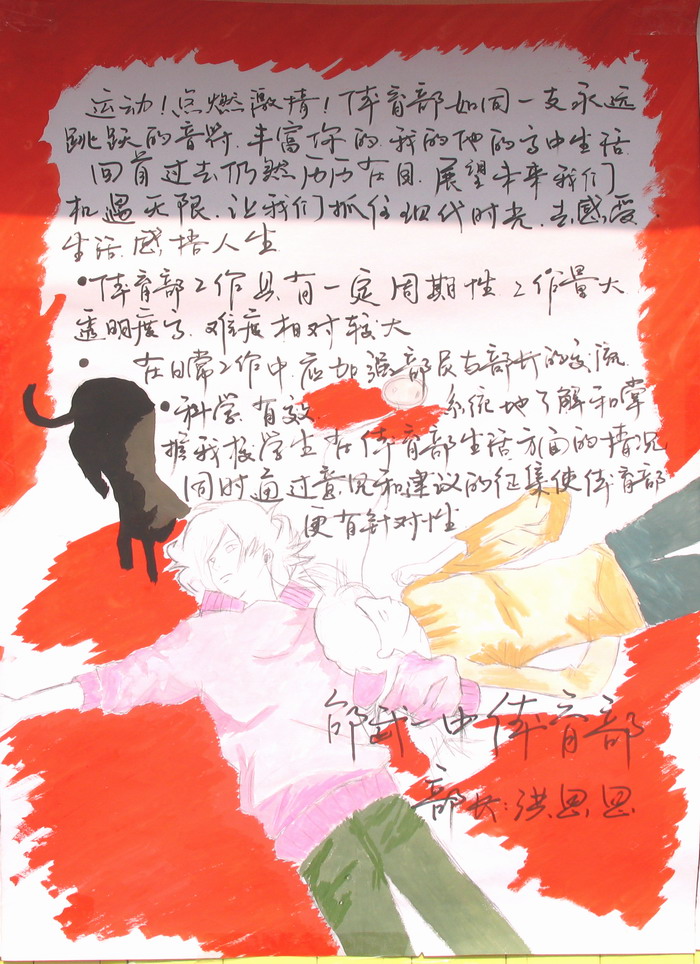 运动！点燃激情！体育部如同一支永远
跳跃的音符.丰富你的.我的他的高中生活
回首过去仍然历历在目.展望未来我们
机遇无限.让我们抓住现代时光.去感受
生活.感悟人生
•体育部工作具有一定周期性.工作量大
透明度高.难度相对较大
• 在日常工作中.应加强部员与部长的交流.
•科学.有效 系统地了解和掌
握我校学生在体育部生活方面的情况
同时通过意见和建议的征集使体育部
更有针对性
邵武一中体育部
部长:洪思思